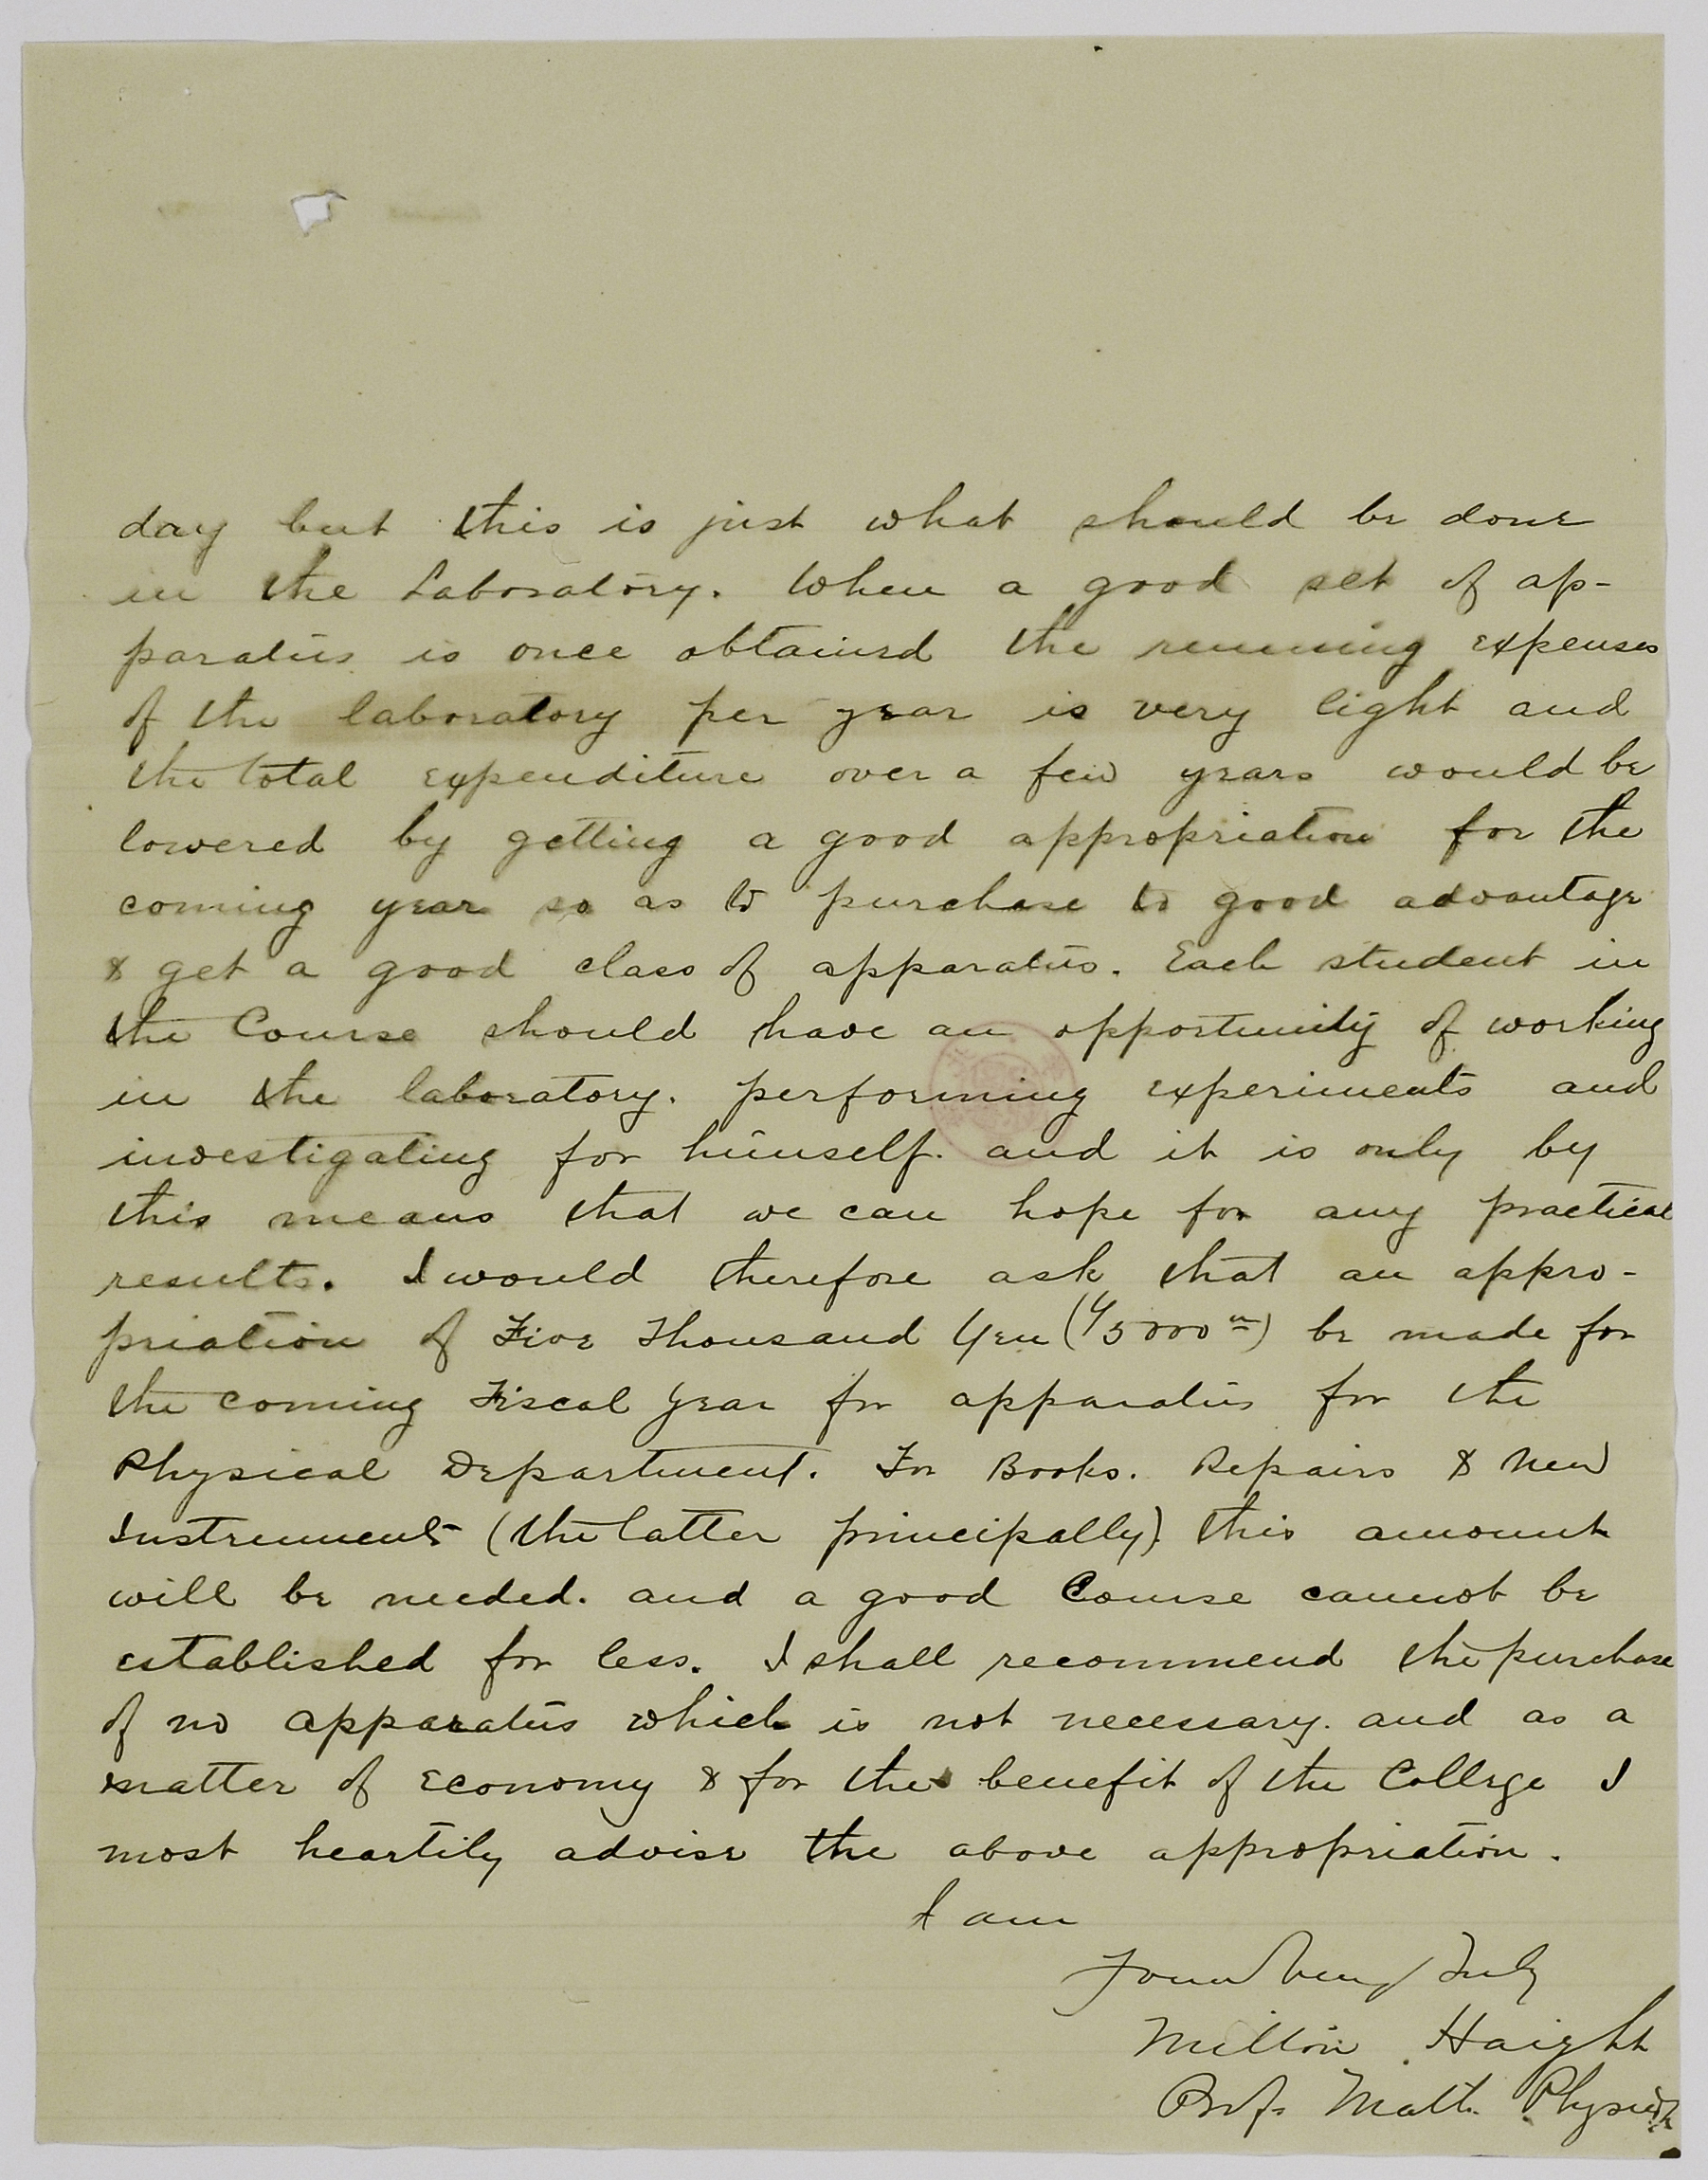 day but this is just what should be done
in the Laboratory. When a good set of ap-
paratus is once obtained the running expenses
of the laboratory per year is very light and
the total expenditure over a few years would be
lowered by getting a good appropriation for the
coming year so as to purchase to good advantage
& get a good class of apparatus. Each student in
the Course should have an opportunity of working
in the laboratory. performing experiments and
investigating for himself. and it is only by
this means that we can hope for any practical
results. I would therefore ask that an appro-
priation of Five Thousand Yen (Y5000) be made for
the coming Fiscal Year for apparatus for the
Physical Department. For Books. Repairs & New
Instruments (the latter principally). this amount
will be needed. and a good Course cannot be
established for less. I shall recommend the purchase
of no apparatus which is not necessary. and as a
matter of economy & for the benefit of the College I
most heartily advise the above appropriation.
I am
Yours Very Truly
Milton Haight
Prof. Math. Physics